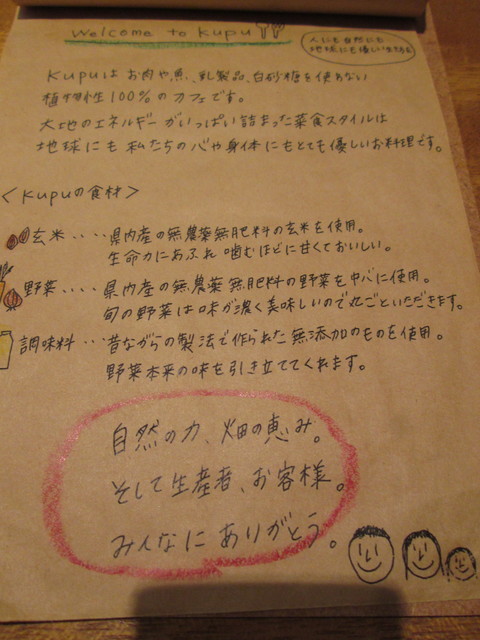 Welcome to Kupu
人にも自然にも
地球にも優しい
Kupuは お肉や魚、乳製品、白砂糖を使わない
植物性100%のカフェです。
大地のエネルギーがいっぱい詰まった菜食スタイルは
地球にも 私たちの心や身体にもとても優しいお料理です。
<Kupuの食材>
玄米‥‥県内産の無農薬無肥料の玄米を使用。
生命力にあふれ 噛むほどに甘くておいしい。
野菜‥‥県内産の無農薬無肥料の野菜を中心に使用。
旬の野菜は味が濃く美味しいので丸ごといただきます。
調味料‥‥昔ながらの製法で作られた無添加のものを使用。
野菜本来の味を引き立ててくれます。
自然の力、畑の恵み。
そして生産者、お客様。
みんなに ありがとう。